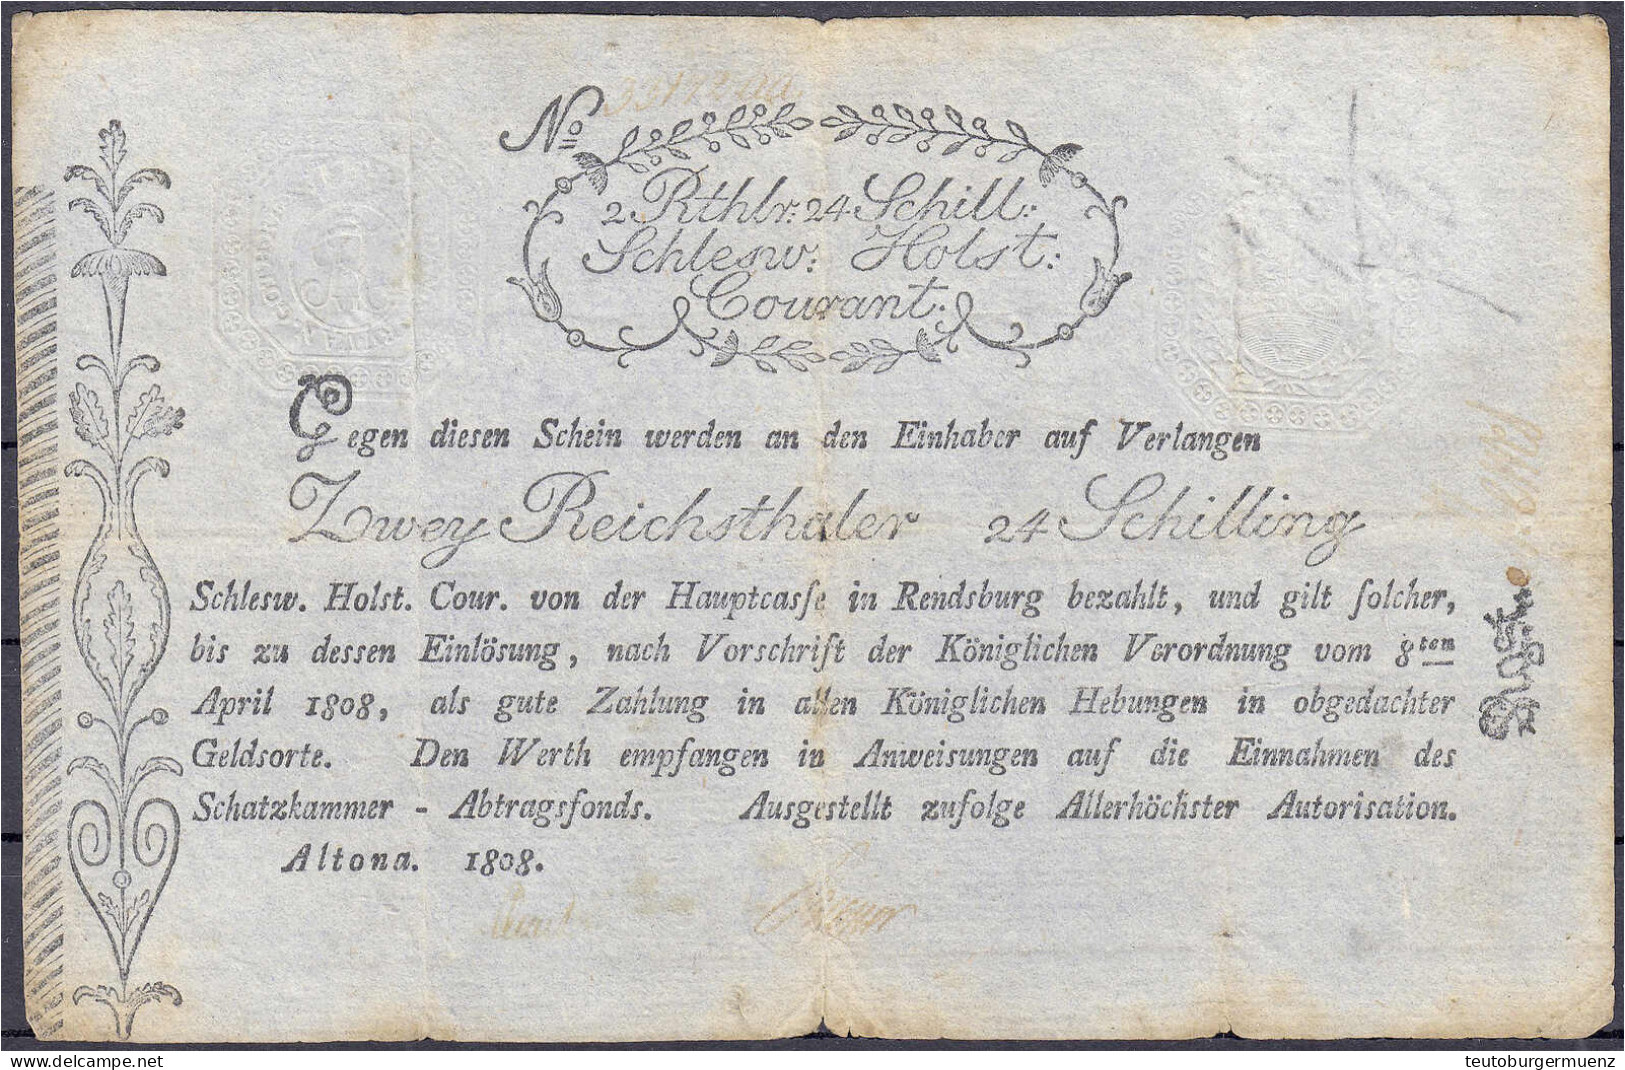 No
2 Rthlr: 24 Schill:
Schlesw: Holst:
Courant:
Gegen diesen Schein werden an den Einhaber auf Verlangen
Zwey Reichsthaler 24 Schilling
Schlesw. Holst. Cour. von der Hauptcaſſe in Rendsburg bezahlt, und gilt ſolcher,
bis zu dessen Einlösung, nach Vorschrift der Königlichen Verordnung vom 8ten
April 1808, als gute Zahlung in allen Königlichen Hebungen in obgedachter
Geldsorte. Den Werth empfangen in Anweisungen auf die Einnahmen des
Schatzkammer - Abtragsfonds. Ausgestellt zufolge Allerhöchster Autorisation.
Altona. 1808.
delcampe.net
teutoburgermuenz